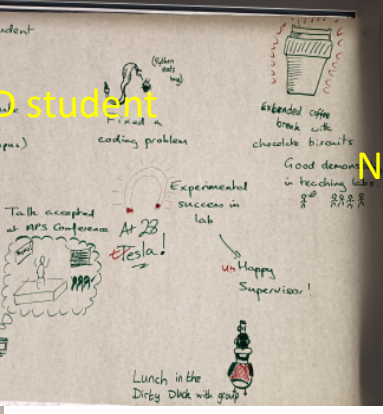 udent
(Python
eats
bug)
D student
Fixed a
coding problem
Extended coffee
break with
chocolate biscuits
N
Good demons
in teaching labs
Experimental
success in
lab
Talk accepted
at APS Conference
At 23
tTesla!
unHappy
Supervisor!
Lunch in the
Dirty Duck with group